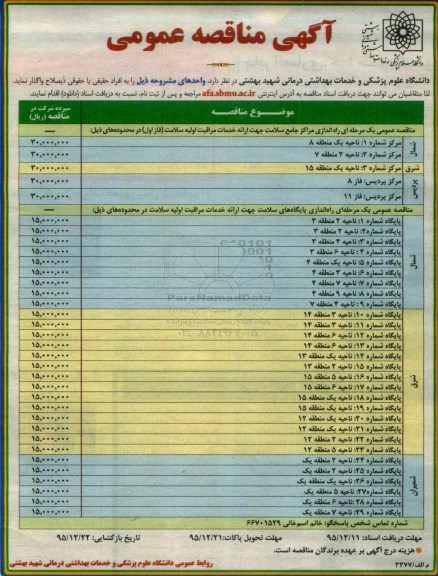 آگهی مناقصه عمومی
دانشگاه علوم پزشکی و خدمات بهداشتی درمانی شهید بهشتی در نظر دارد، واحدهای مشروحه ذیل را به افراد حقیقی یا حقوقی ذیصلاح واگذار نماید.
لذا متقاضیان می توانند جهت دریافت اسناد مناقصه به آدرس اینترنتی afa.sbmu.ac.ir مراجعه و پس از ثبت نام، نسبت به دریافت اسناد (دانلود) اقدام نمایند.
موضوع مناقصه
سپرده شرکت در مناقصه (ریال)
مناقصه عمومی یک مرحله ای راه اندازی مراکز جامع سلامت جهت ارائه خدمات مراقبت اولیه سلامت (فاز اول) در محدوده‌های ذیل:
شمال
مرکز شماره ۱: ناحیه یک منطقه ۸ ۳۰,۰۰۰,۰۰۰
مرکز شماره ۲: ناحیه ۲ منطقه ۷ ۳۰,۰۰۰,۰۰۰
شرق مرکز شماره ۳: ناحیه یک منطقه ۱۵ ۳۰,۰۰۰,۰۰۰
پردیس
مرکز پردیس: فاز ۸ ۳۰,۰۰۰,۰۰۰
مرکز پردیس: فاز ۱۱ ۳۰,۰۰۰,۰۰۰
مناقصه عمومی یک مرحله‌ای راه‌اندازی پایگاه‌های سلامت جهت ارائه خدمات مراقبت اولیه سلامت در محدوده‌های ذیل:
شمال
پایگاه شماره ۱: ناحیه ۲ منطقه ۳ ۱۵,۰۰۰,۰۰۰
پایگاه شماره ۲: ناحیه ۲ منطقه ۳ ۱۵,۰۰۰,۰۰۰
پایگاه شماره ۳: ناحیه ۴ منطقه ۳ ۱۵,۰۰۰,۰۰۰
پایگاه شماره ۴: ناحیه ۶ منطقه ۳ ۱۵,۰۰۰,۰۰۰
پایگاه شماره ۵: ناحیه یک منطقه ۴ ۱۵,۰۰۰,۰۰۰
پایگاه شماره ۶: ناحیه ۳ منطقه ۴ ۱۵,۰۰۰,۰۰۰
پایگاه شماره ۷: ناحیه ۷ منطقه ۴ ۱۵,۰۰۰,۰۰۰
پایگاه شماره ۸: ناحیه ۹ منطقه ۴ ۱۵,۰۰۰,۰۰۰
پایگاه شماره ۹: ناحیه ۴ منطقه ۷ ۱۵,۰۰۰,۰۰۰
شرق
پایگاه شماره ۱۰: ناحیه ۳ منطقه ۱۴ ۱۵,۰۰۰,۰۰۰
پایگاه شماره ۱۱: ناحیه ۳ منطقه ۱۴ ۱۵,۰۰۰,۰۰۰
پایگاه شماره ۱۲: ناحیه ۶ منطقه ۱۴ ۱۵,۰۰۰,۰۰۰
پایگاه شماره ۱۳: ناحیه ۶ منطقه ۱۴ ۱۵,۰۰۰,۰۰۰
پایگاه شماره ۱۴: ناحیه یک منطقه ۱۳ ۱۵,۰۰۰,۰۰۰
پایگاه شماره ۱۵: ناحیه ۲ منطقه ۱۳ ۱۵,۰۰۰,۰۰۰
پایگاه شماره ۱۶: ناحیه ۵ منطقه ۱۵ ۱۵,۰۰۰,۰۰۰
پایگاه شماره ۱۷: ناحیه ۶ منطقه ۱۵ ۱۵,۰۰۰,۰۰۰
پایگاه شماره ۱۸: ناحیه یک منطقه ۱۵ ۱۵,۰۰۰,۰۰۰
پایگاه شماره ۱۹: ناحیه یک منطقه ۱۵ ۱۵,۰۰۰,۰۰۰
پایگاه شماره ۲۰: ناحیه یک منطقه ۱۲ ۱۵,۰۰۰,۰۰۰
پایگاه شماره ۲۱: ناحیه یک منطقه ۱۲ ۱۵,۰۰۰,۰۰۰
پایگاه شماره ۲۲: ناحیه ۲ منطقه ۱۲ ۱۵,۰۰۰,۰۰۰
پایگاه شماره ۲۳: ناحیه ۵ منطقه ۱۲ ۱۵,۰۰۰,۰۰۰
شمیران
پایگاه شماره ۲۴: ناحیه ۲ منطقه یک ۱۵,۰۰۰,۰۰۰
پایگاه شماره ۲۵: ناحیه ۲ منطقه یک ۱۵,۰۰۰,۰۰۰
پایگاه شماره ۲۶: ناحیه یک منطقه یک ۱۵,۰۰۰,۰۰۰
پایگاه شماره ۲۷: ناحیه ۵ منطقه یک ۱۵,۰۰۰,۰۰۰
پایگاه شماره ۲۸: ناحیه ۶ منطقه یک ۱۵,۰۰۰,۰۰۰
پایگاه شماره ۲۹: ناحیه ۷ منطقه یک ۱۵,۰۰۰,۰۰۰
شماره تماس شخص پاسخگو: خانم اسیرخانی ۶۶۷۰۱۵۲۹
مهلت دریافت اسناد: ۹۵/۱۲/۱۱ مهلت تحویل پاکات: ۹۵/۱۲/۲۱ تاریخ بازگشایی: ۹۵/۱۲/۲۲
هزینه درج آگهی بر عهده برندگان مناقصه است.
م الف/۳۳۷۷ روابط عمومی دانشگاه علوم پزشکی و خدمات بهداشتی درمانی شهید بهشتی